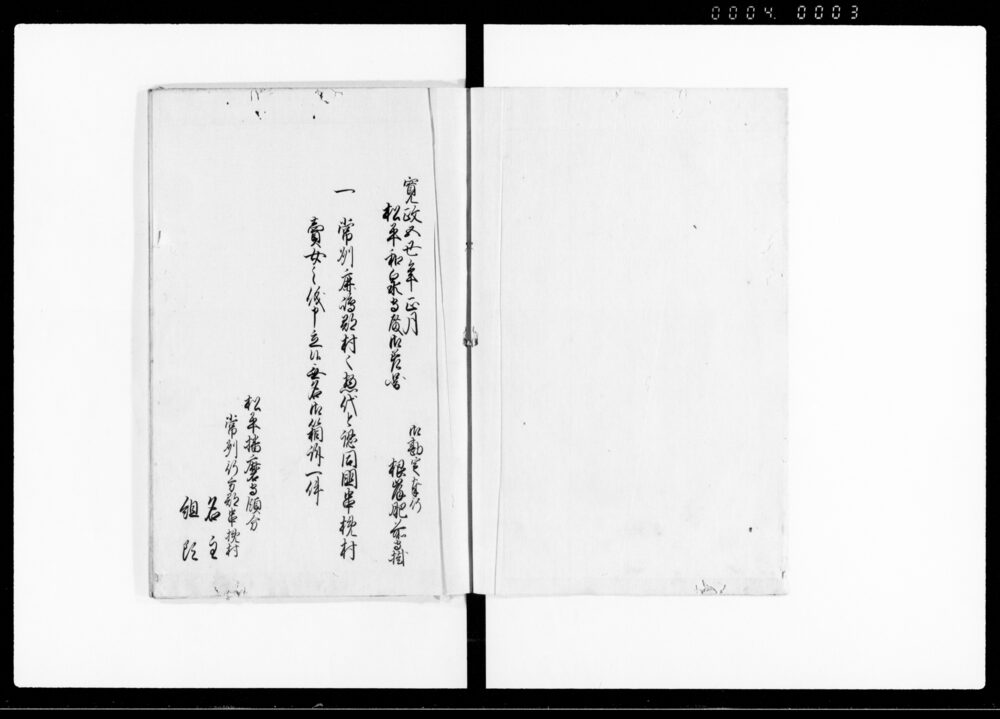 0004 0003
寛政五丑年正月
松平和泉守殿御差図
御勘定奉行
根岸肥前守掛
一 常州鹿嶋郡村々惣代と認同国串挽村
賣女之儀申立候無名御箱訴一件
松平播磨守領分
常州行方郡串挽村
名主
組頭